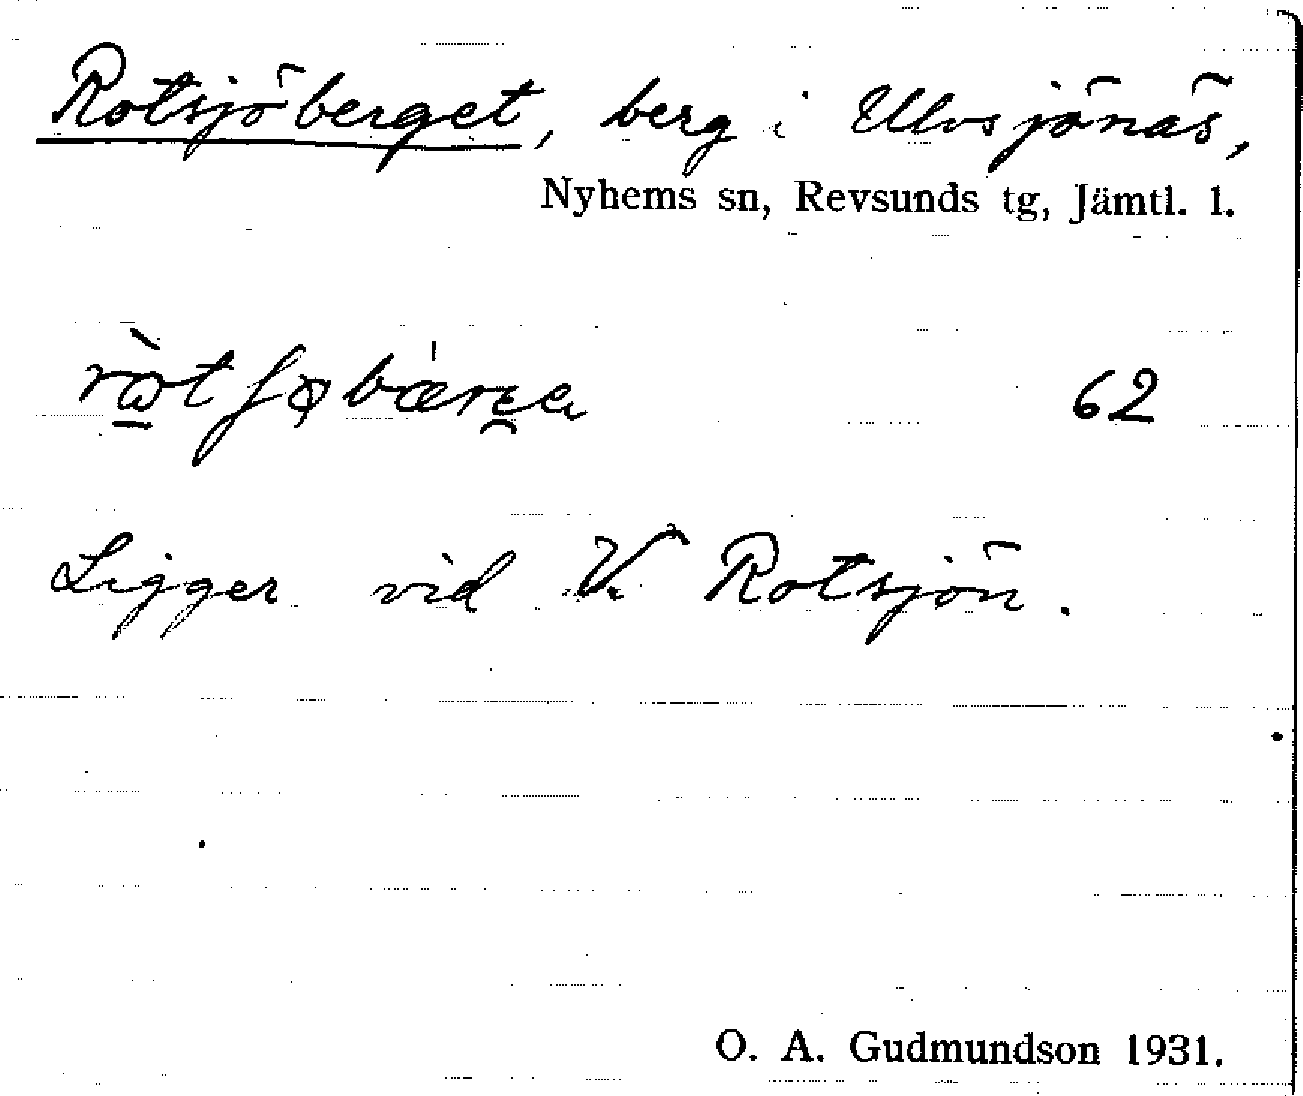 Rotsjöberget, berg i Ulvsjönäs,
Nyhems sn, Revsunds tg, Jämtl. l.
62
Ligger vid V. Rotsjön.
O. A. Gudmundson 1931.